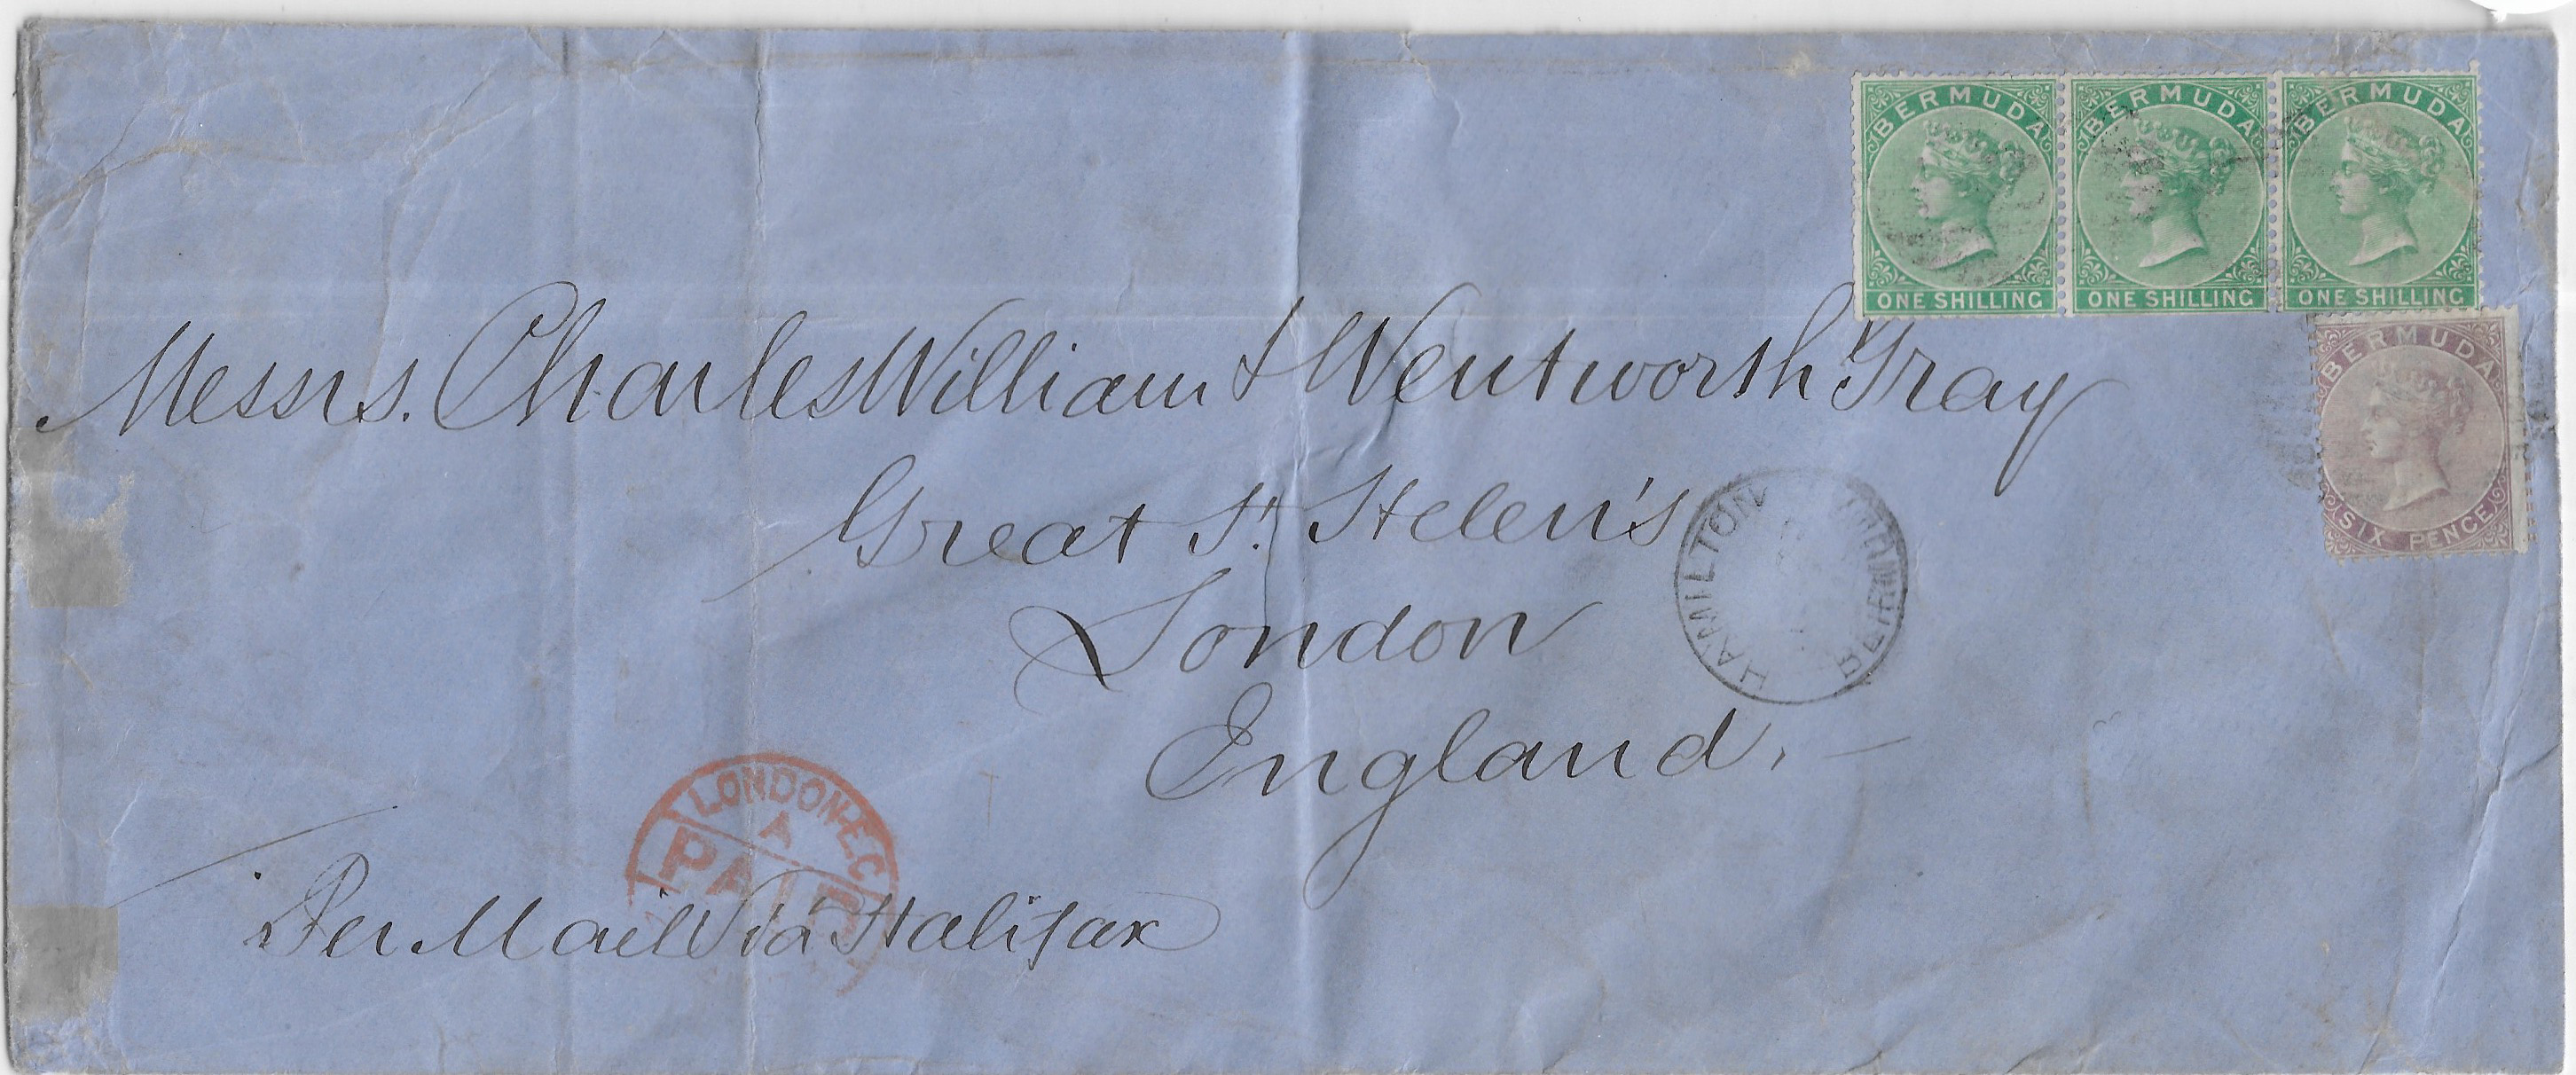 BERMUDA BERMUDA BERMUDA
ONE SHILLING ONE SHILLING ONE SHILLING
BERMUDA
SIX PENCE
Messrs. Charles William & Wentworth Gray
Great St. Helen's
London
England.
HAMILTON
LONDON-E.C
A
PAID
Per Mail Via Halifax